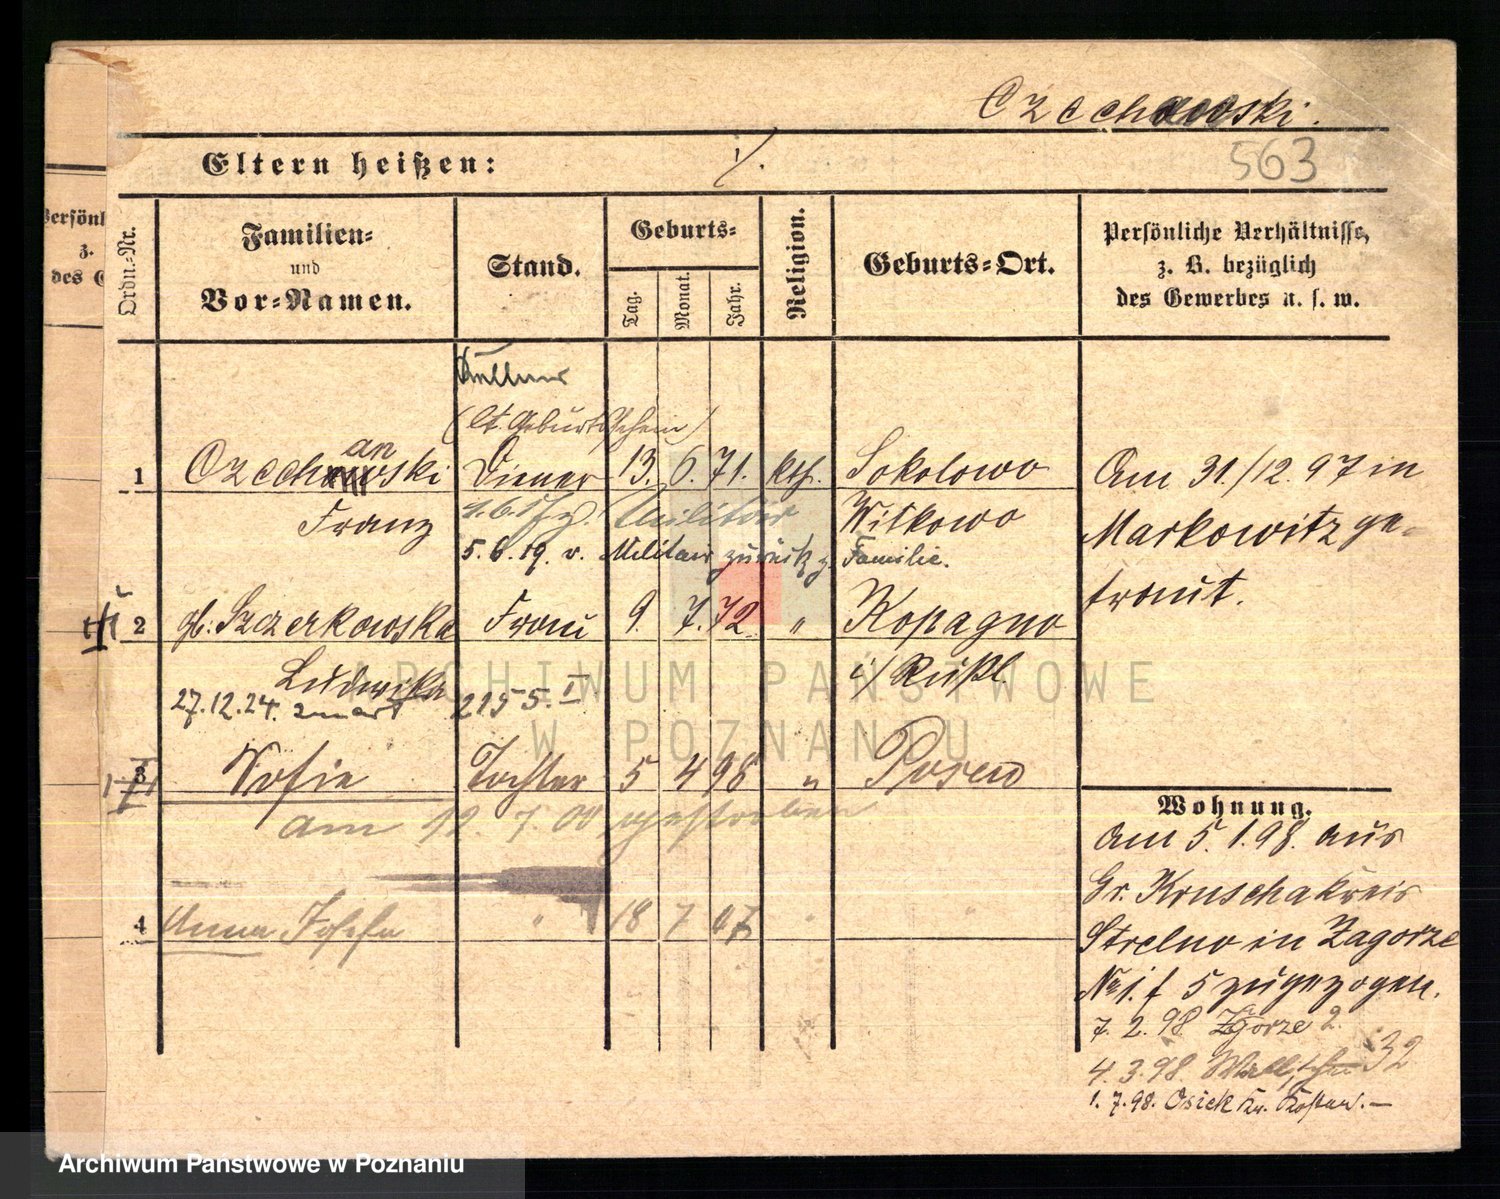 Czechowski.
Eltern heißen:
./.
563
Persönl
z.
des G
Ordn.-Nr.
Familien-
und
Vor-Namen.
Stand.
Geburts-
Tag.
Monat.
Jahr.
Religion.
Geburts-Ort.
Persönliche Verhältnisse,
z. B. bezüglich
des Gewerbes u. s. w.
(lt. Geburtsschein)
an
1 Czechowski Diener 13. 6. 71. kth. Sokolowo
Franz Militär Witkowo
5.6.19. v. Militair zurück z. Familie.
Am 31./12. 97 in
Markowitz ge-
traut.
2 gb: Szczerkowska Frau 9. 7. 72. " Kopagno
Ludwika i/ Rußl.
27.12.24. zmarł 2155.I
3 Sofie Tochter 5 4 98 " Posen
am 19. 7. 00 gestorben
4 Anna Josefa " 18 7 07 " "
Wohnung.
Am 5. 1. 98. aus
Gr. Kruscha Kreis
Strelno in Zagorze
No 1. f 5 zugezogen.
7. 2. 98 Zagorze 2.
4. 3. 98 Wallischei 32
1. 7. 98. Osiek Kr. Kosten. —
ARCHIWUM PAŃSTWOWE
W POZNANIU
Archiwum Państwowe w Poznaniu